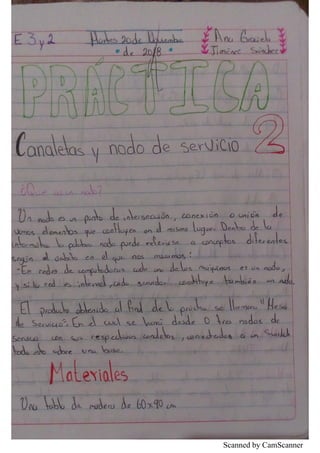 E 3 y 2 Martes 20 de Noviembre Ana Graciela
* de 2018 * Jiménez Sánchez
PRÁCTICA
Canaletas y nodo de servicio 2
¿Que es un nodo?
Un nodo es un punto de intersección, conexión o unión de
varios elementos que confluyen en el mismo lugar. Dentro de la
informatica la palabra nodo puede referirse a conceptos diferentes
según el ámbito en el que nos movamos:
-En redes de computadoras cada una de las maquinas es un nodo,
y si la red es internet, cada servidor constituye también un nodo.
El producto obtenido al final de la practica se llamara "Mesa
de Servicio". En el cual se hará desde 0 tres nodos de
servicio con sus respectivas canaletas, conectados a un Switch
todo esto sobre una base.
Materiales
Una tabla de madera de 60x90 cm
Scanned by CamScanner